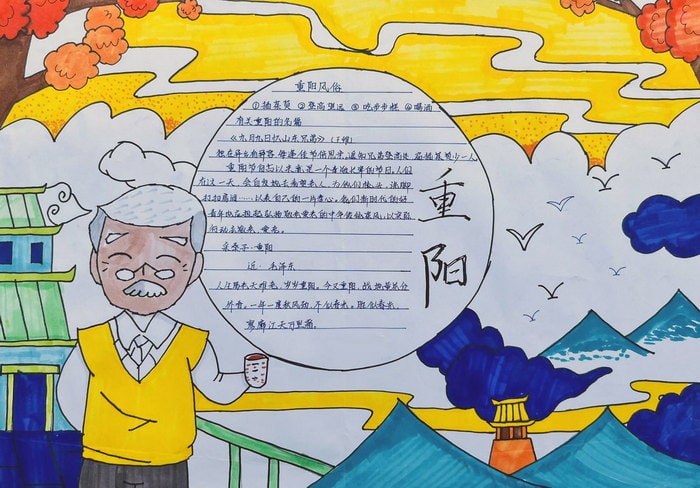 重阳风俗
①插茱萸 ②登高望远 ③吃步步糕 ④喝酒
有关重阳的名篇
《九月九日忆山东兄弟》(王维)
独在异乡为异客,每逢佳节倍思亲。遥知兄弟登高处,遍插茱萸少一人
重阳节自古以来就是一个尊敬长辈的节日。人们
在这一天,会自发地去看望老人,为他们梳头,洗脚
打扫房间……以表自己的一片孝心。我们新时代的好
青年也应积极弘扬敬老爱老的中华传统美德,以实际
行动去敬老、爱老。
采桑子·重阳
近·毛泽东
人生易老天难老,岁岁重阳。今又重阳,战地黄花分
外香。一年一度秋风劲,不似春光。胜似春光,
寥廓江天万里霜。
重阳